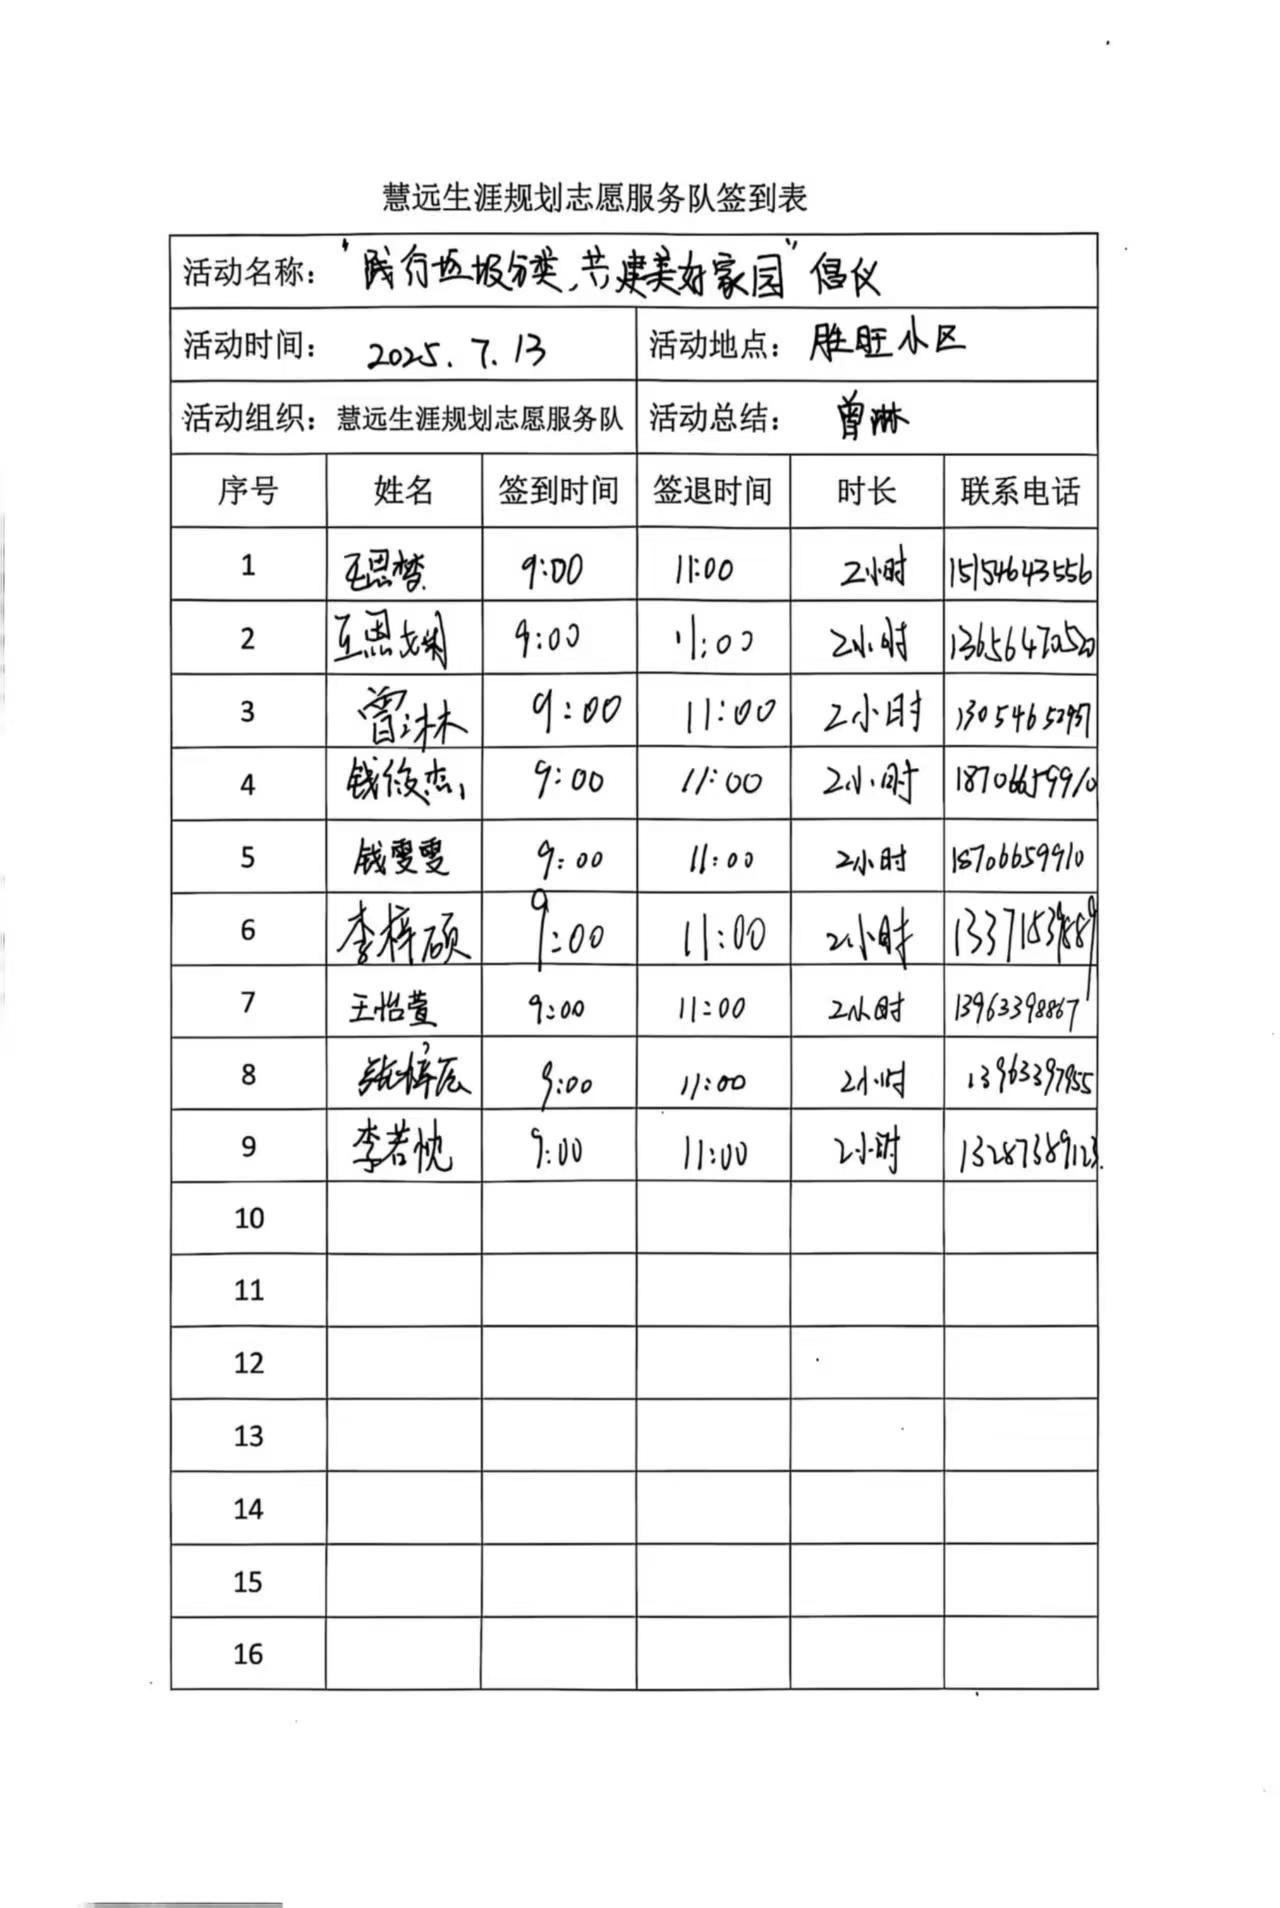 慧远生涯规划志愿服务队签到表
活动名称： “践行垃圾分类，共建美好家园”倡仪
活动时间： 2025.7.13 活动地点： 胜旺小区
活动组织：慧远生涯规划志愿服务队 活动总结： 曾淋
序号 姓名 签到时间 签退时间 时长 联系电话
1 王思梦 9:00 11:00 2小时 15154643556
2 王思 9:00 11:00 2小时 13656470520
3 曾淋 9:00 11:00 2小时
4 钱俊杰 9:00 11:00 2小时 18706659910
5 钱雯雯 9:00 11:00 2小时 18706659910
6 李梓硕 9:00 11:00 2小时 13371539889
7 王怡萱 9:00 11:00 2小时 13963398867
8 张梓辰 9:00 11:00 2小时 13963397955
9 李若忱 9:00 11:00 2小时 13287389123
10
11
12
13
14
15
16